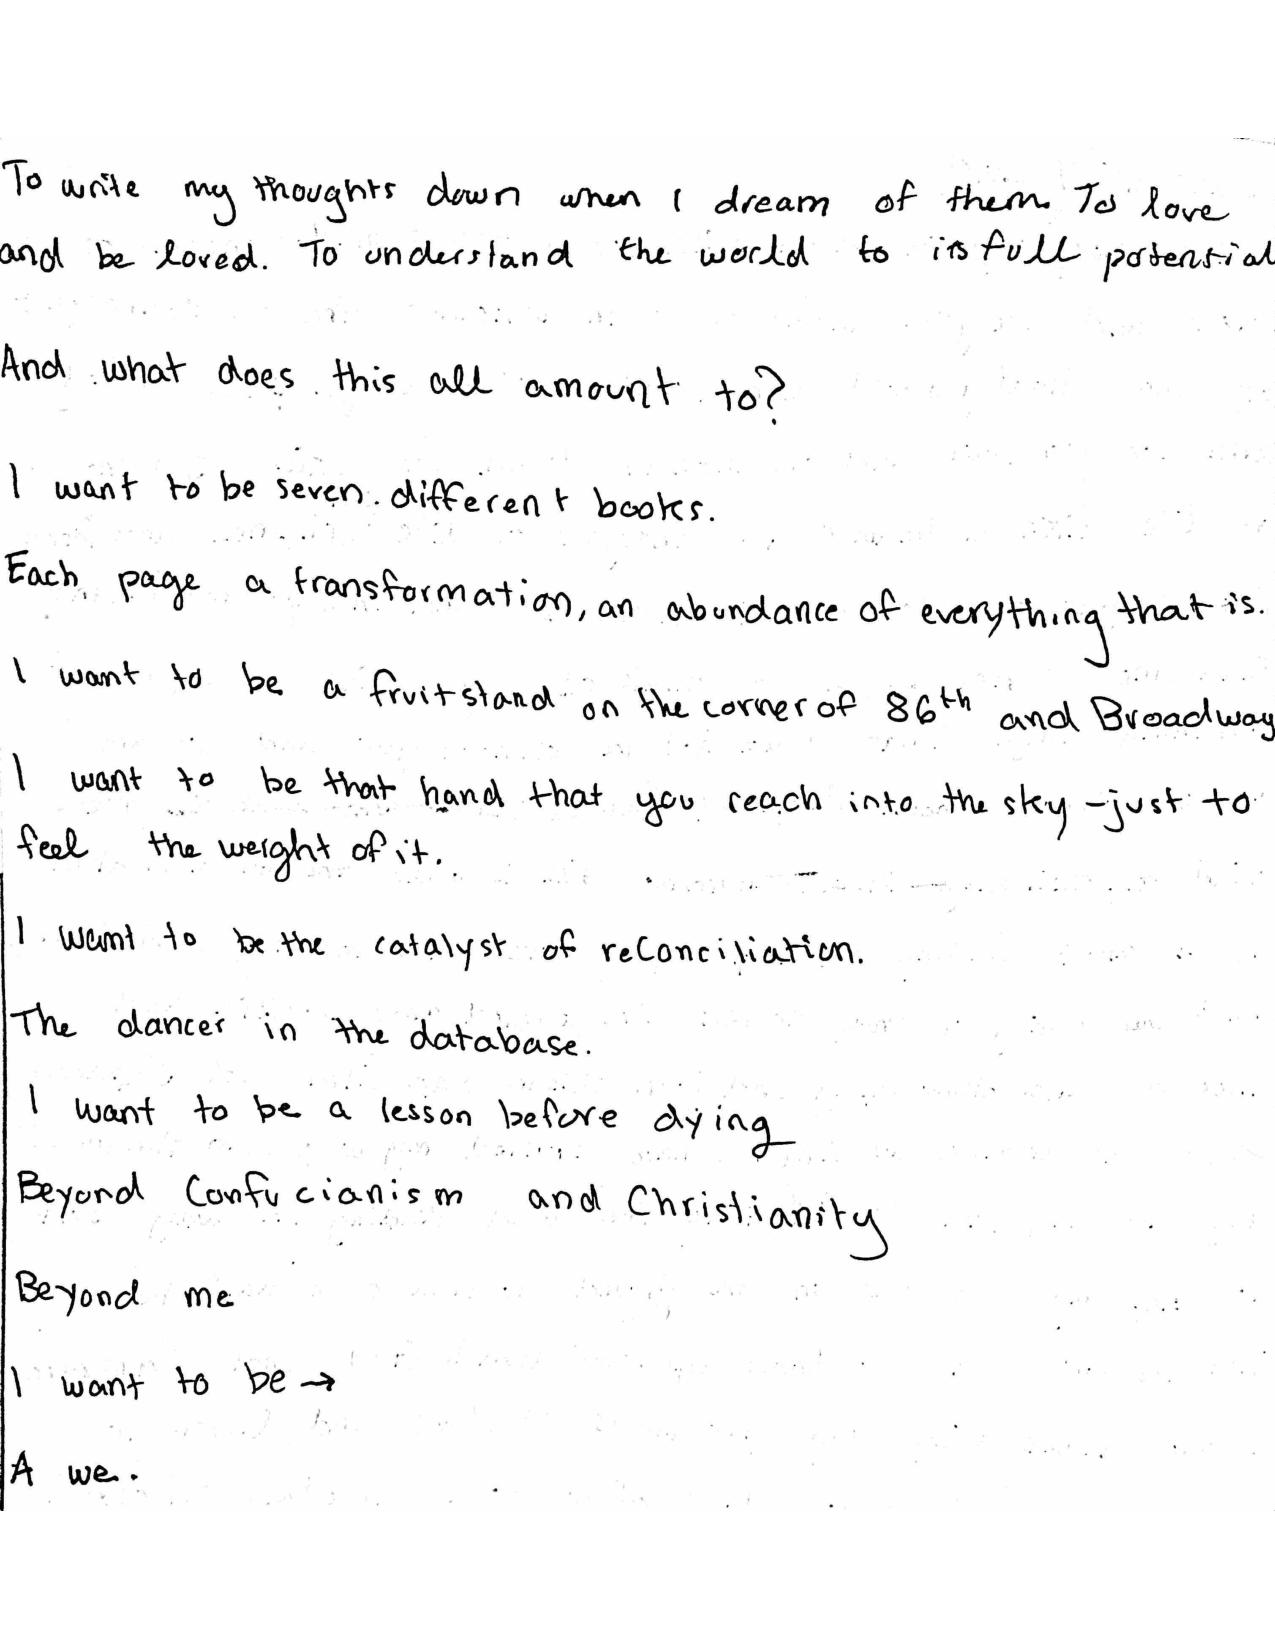 To write my thoughts down when I dream of them. To love
and be loved. To understand the world to its full potential
And what does this all amount to?
I want to be seven different books.
Each page a transformation, an abundance of everything that is.
I want to be a fruitstand on the corner of 86th and Broadway
I want to be that hand that you reach into the sky - just to
feel the weight of it.
I want to be the catalyst of reconciliation.
The dancer in the database.
I want to be a lesson before dying
Beyond Confucianism and Christianity
Beyond me
I want to be →
A we.